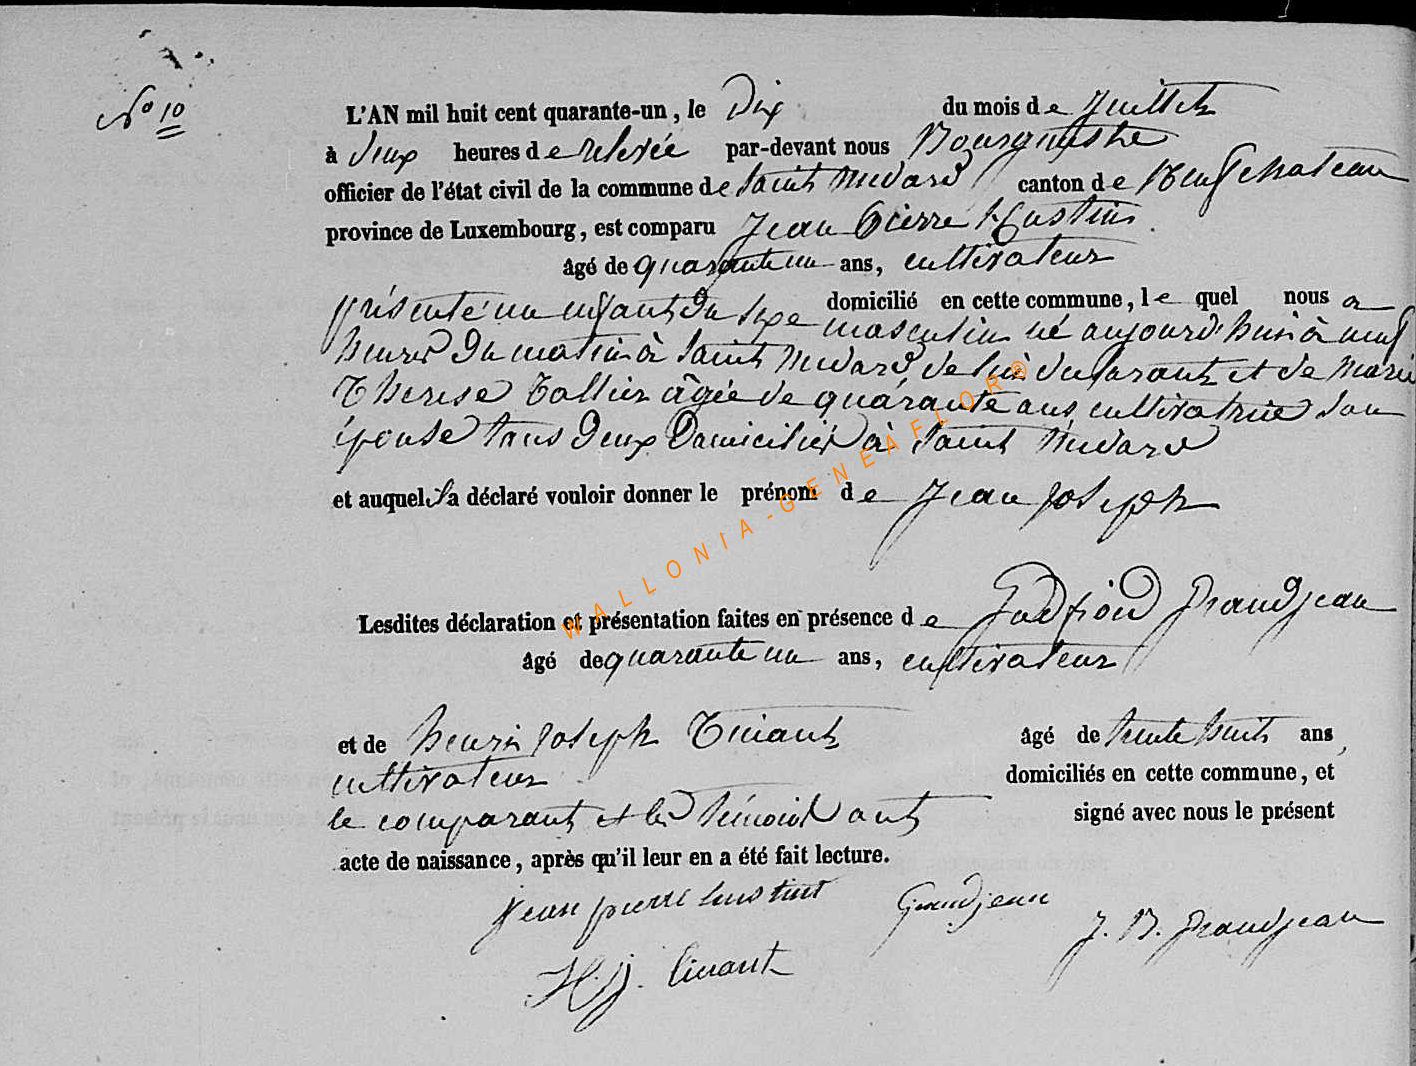 No 10
L'AN mil huit cent quarante-un, le Dix du mois de Juillet
à deux heures de relevée par-devant nous Bourgmestre
officier de l'état civil de la commune de Saint Medard canton de Neufchateau
province de Luxembourg, est comparu Jean Pierre
âgé de quarante un ans, cultivateur
domicilié en cette commune, le quel nous a
présenté un enfant du sexe masculin né aujourd'hui à neuf
heures du matin à Saint Medard de lui déclarant et de Marie
Therese Collin âgée de quarante ans cultivatrice son
épouse tous deux domiciliés à Saint Medard
et auquel il a déclaré vouloir donner le prénom de Jean Joseph
Lesdites déclaration et présentation faites en présence de Godfroid Grandjean
âgé de quarante un ans, cultivateur
et de henri Joseph Tinant âgé de trente huit ans
cultivateur domiciliés en cette commune, et
le comparant et les témoins ont signé avec nous le présent
acte de naissance, après qu'il leur en a été fait lecture.
jean pierre Grandjean
J. B. Grandjean
H. J. Tinant
WALLONIA-GENEAFLOR®